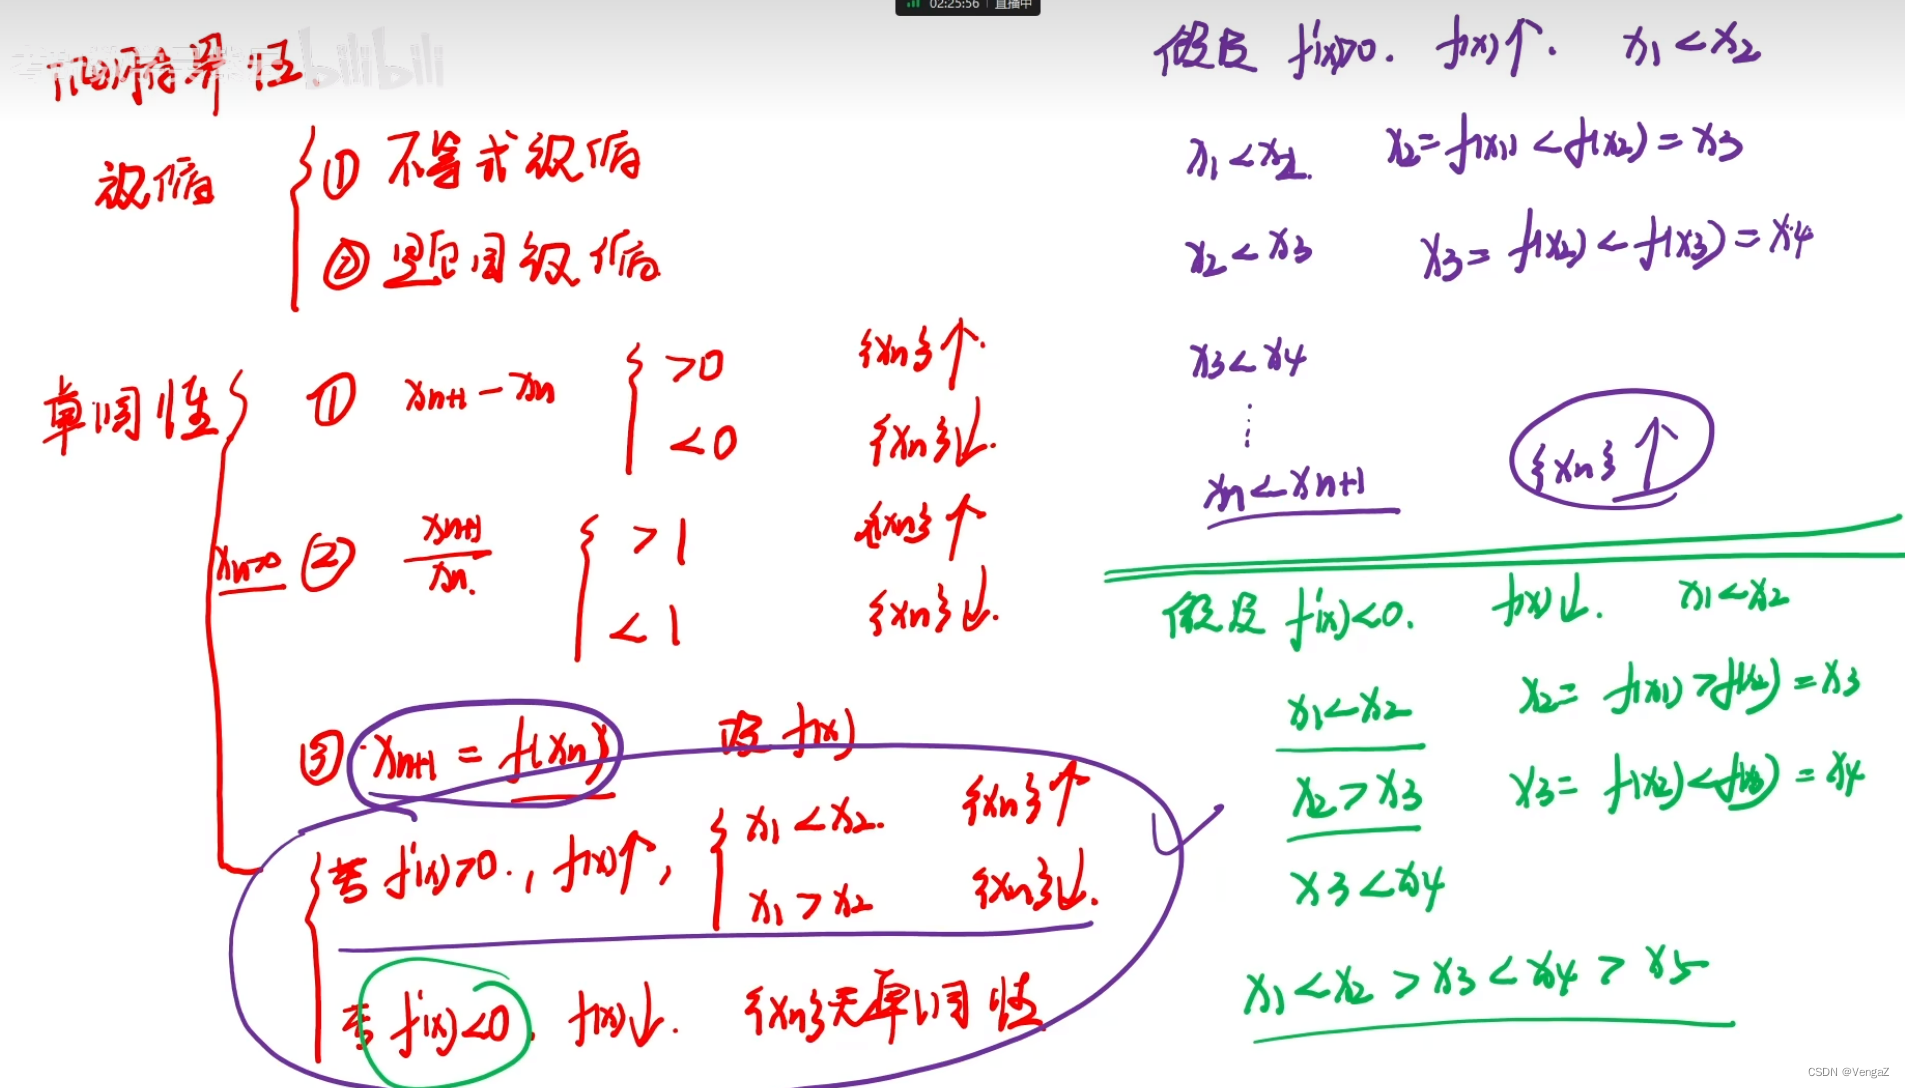 02:25:56 直播中
bilibili
放缩 { ① 不等式放缩
② 题目放缩
单调性 { ① xn+1 - xn { >0 {xn}↑.
<0 {xn}↓.
xn>0 ② xn+1/xn. { >1 {xn}↑
<1 {xn}↓.
③ xn+1 = f(xn) 设 f(x)
若 f'(x)>0., f(x)↑, { x1 < x2. {xn}↑
x1 > x2 {xn}↓.
若 f'(x)<0, f(x)↓. {xn}无单调性
假设 f'(x)>0. f(x)↑. x1 < x2
x1 < x2. x2 = f(x1) < f(x2) = x3
x2 < x3 x3 = f(x2) < f(x3) = x4
x3 < x4
⋮
xn < xn+1 {xn}↑
假设 f'(x)<0. f(x)↓. x1 < x2
x1 < x2 x2 = f(x1) > f(x2) = x3
x2 > x3 x3 = f(x2) < f(x3) = x4
x3 < x4
x1 < x2 > x3 < x4 > x5
CSDN @VengaZ